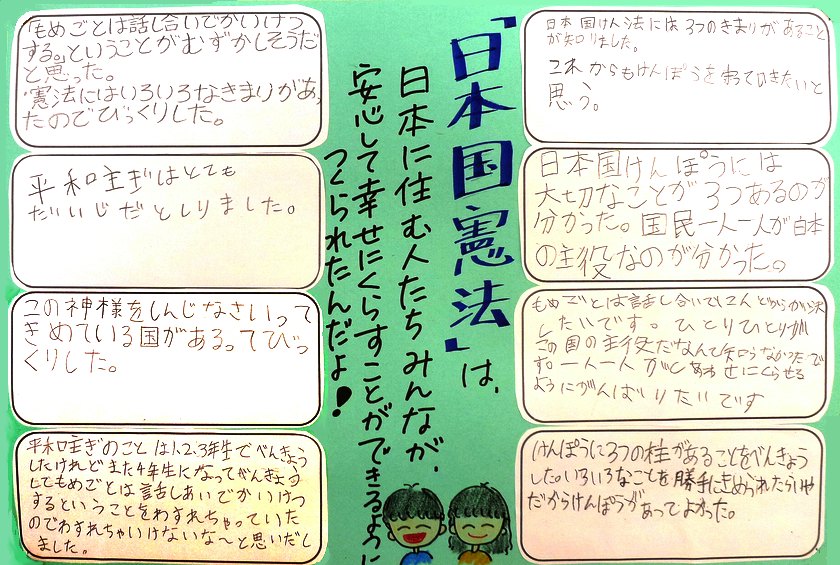 「日本国憲法」は、
日本に住む人たちみんなが、
安心して幸せにくらすことができるように
つくられたんだよ！
日本国けん法には3つのきまりがあること
が知りました。
これからもけんぽうを守っていきたいと
思う。
日本国けんぽうには
大切なことが3つあるのが
分かった。国民一人一人が日本
の主役なのが分かった。
もめごとは話し合いでこんどからかい決
したいです。ひとりひとりが
この国の主役だなんて知らなかったで
す。一人一人がしあわせにくらせる
ようにがんばりたいです
けんぽうに3つの柱があることをべんきょう
した。いろいろなことを勝手にきめられたらいや
だからけんぽうがあってよかった。
「もめごとは話し合いでかいけつ
する。」ということがむずかしそうだ
と思った。
・憲法にはいろいろなきまりがあっ
たのでびっくりした。
平和主ぎはとても
だいじだとしりました。
この神様をしんじなさいって
きめている国があるってびっ
くりした。
平和主ぎのことは1.2.3年生でべんきょう
したけれどまた4年生になってべんきょう
してもめごとは話しあいでかいけつ
するということをわすれちゃっていた
のでわすれちゃいけないな〜と思いだし
ました。